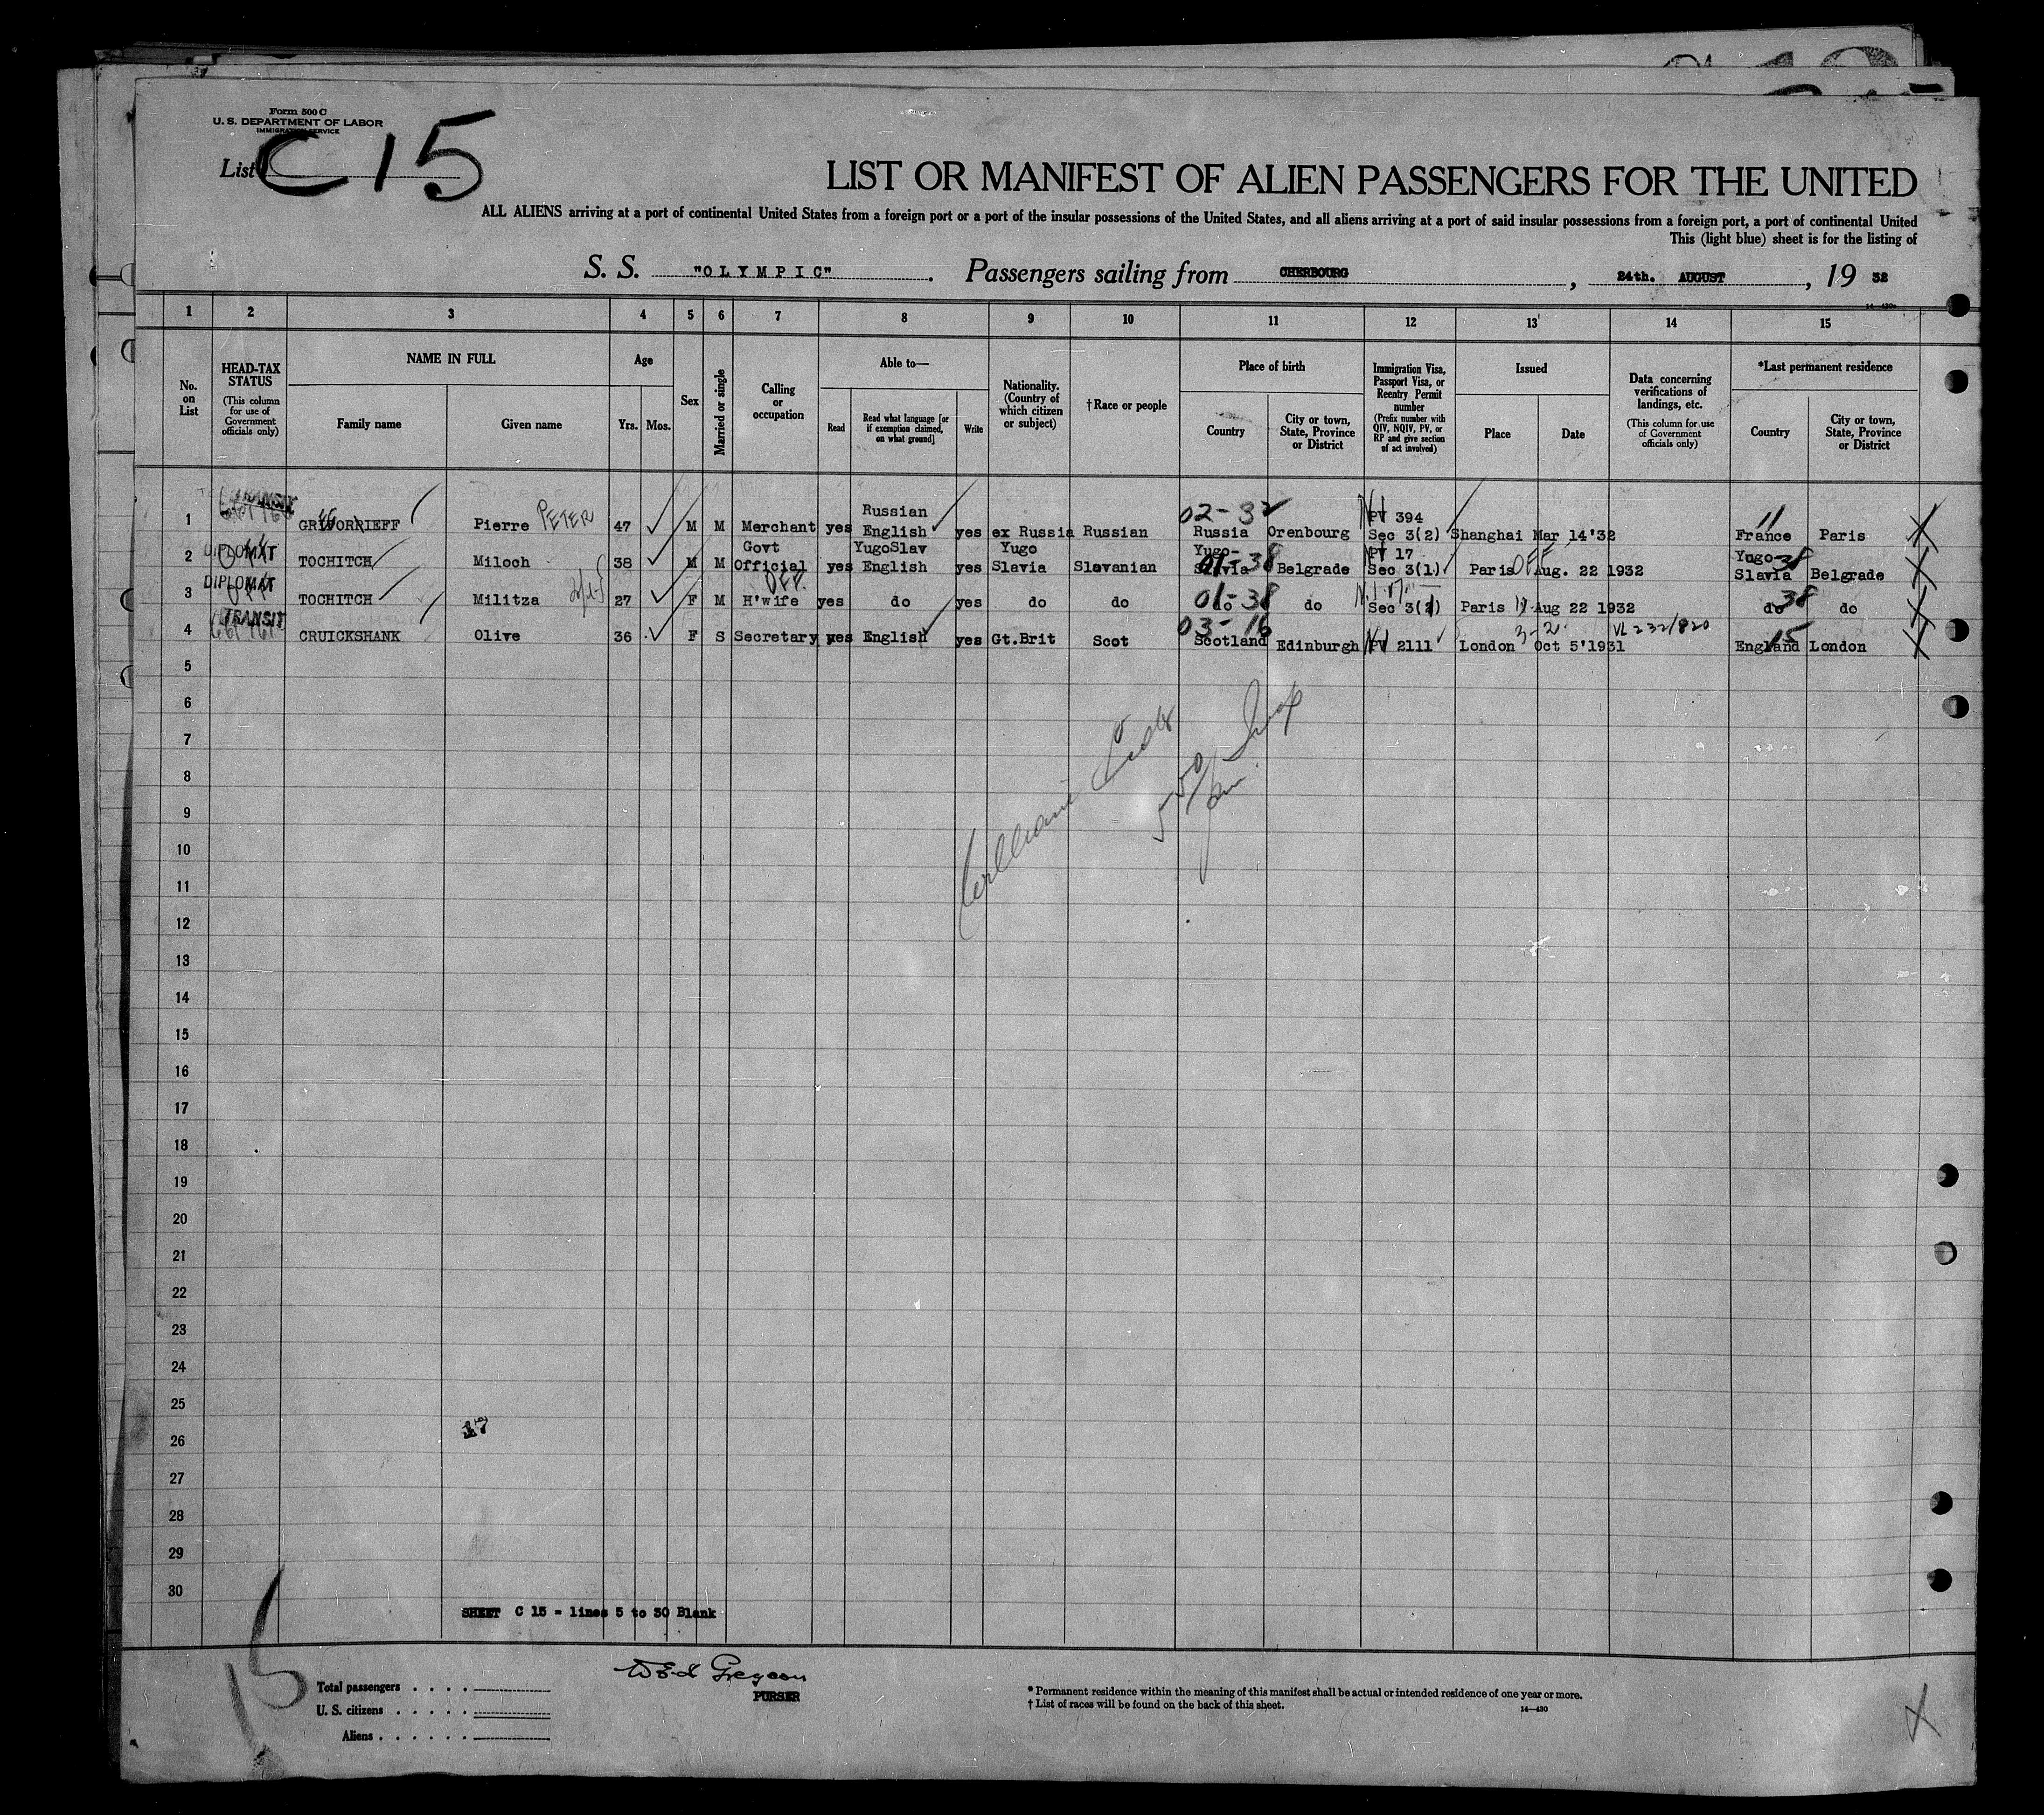 Form 500 C
U. S. DEPARTMENT OF LABOR
IMMIGRATION SERVICE
List C 15
LIST OR MANIFEST OF ALIEN PASSENGERS FOR THE UNITED
ALL ALIENS arriving at a port of continental United States from a foreign port or a port of the insular possessions of the United States, and all aliens arriving at a port of said insular possessions from a foreign port, a port of continental United
This (light blue) sheet is for the listing of
S. S. "OLYMPIC". Passengers sailing from CHERBOURG, 24th. AUGUST, 19 32
1 2 3 4 5 6 7 8 9 10 11 12 13 14 15
No. on List
HEAD-TAX STATUS (This column for use of Government officials only)
NAME IN FULL
Family name
Given name
Age
Yrs. Mos.
Sex
Married or single
Calling or occupation
Able to—
Read
Read what language [or if exemption claimed, on what ground]
Write
Nationality. (Country of which citizen or subject)
†Race or people
Place of birth
Country
City or town, State, Province or District
Immigration Visa, Passport Visa, or Reentry Permit number (Prefix number with QIV, NQIV, PV, or RP and give section of act involved)
Issued
Place
Date
Data concerning verifications of landings, etc. (This column for use of Government officials only)
*Last permanent residence
Country
City or town, State, Province or District
1 TRANSIT Pierre PETER 47 M M Merchant yes Russian English yes ex Russia Russian 02-32 Russia Orenbourg PV 394 Sec 3(2) Shanghai Mar 14'32 11 France Paris
2 DIPLOMAT TOCHITCH Miloch 38 M M Govt Official yes YugoSlav English yes Yugo Slavia Slavanian 01-38 Yugo-Slavia Belgrade PV 17 Sec 3(1) Paris OFF Aug. 22 1932 38 Yugo-Slavia Belgrade
3 DIPLOMAT TOCHITCH Militza 27 F M OFF. H'wife yes do yes do do 01-38 do do Sec 3(1) Paris Aug 22 1932 38 do do
4 TRANSIT CRUICKSHANK Olive 36 F S Secretary yes English yes Gt.Brit Scot 03-16 Scotland Edinburgh PV 2111 London 3-2 Oct 5'1931 VL 232/820 15 England London
5
6
7
8
9
10
11
12
13
14
15
16
17
18
19
20
21
22
23
24
25
26
27
28
29
30
17
SHEET C 15 - lines 5 to 30 Blank
15
PURSER
Total passengers . . . .
U. S. citizens . . . . .
Aliens . . . . . .
* Permanent residence within the meaning of this manifest shall be actual or intended residence of one year or more.
† List of races will be found on the back of this sheet.
14—430
X